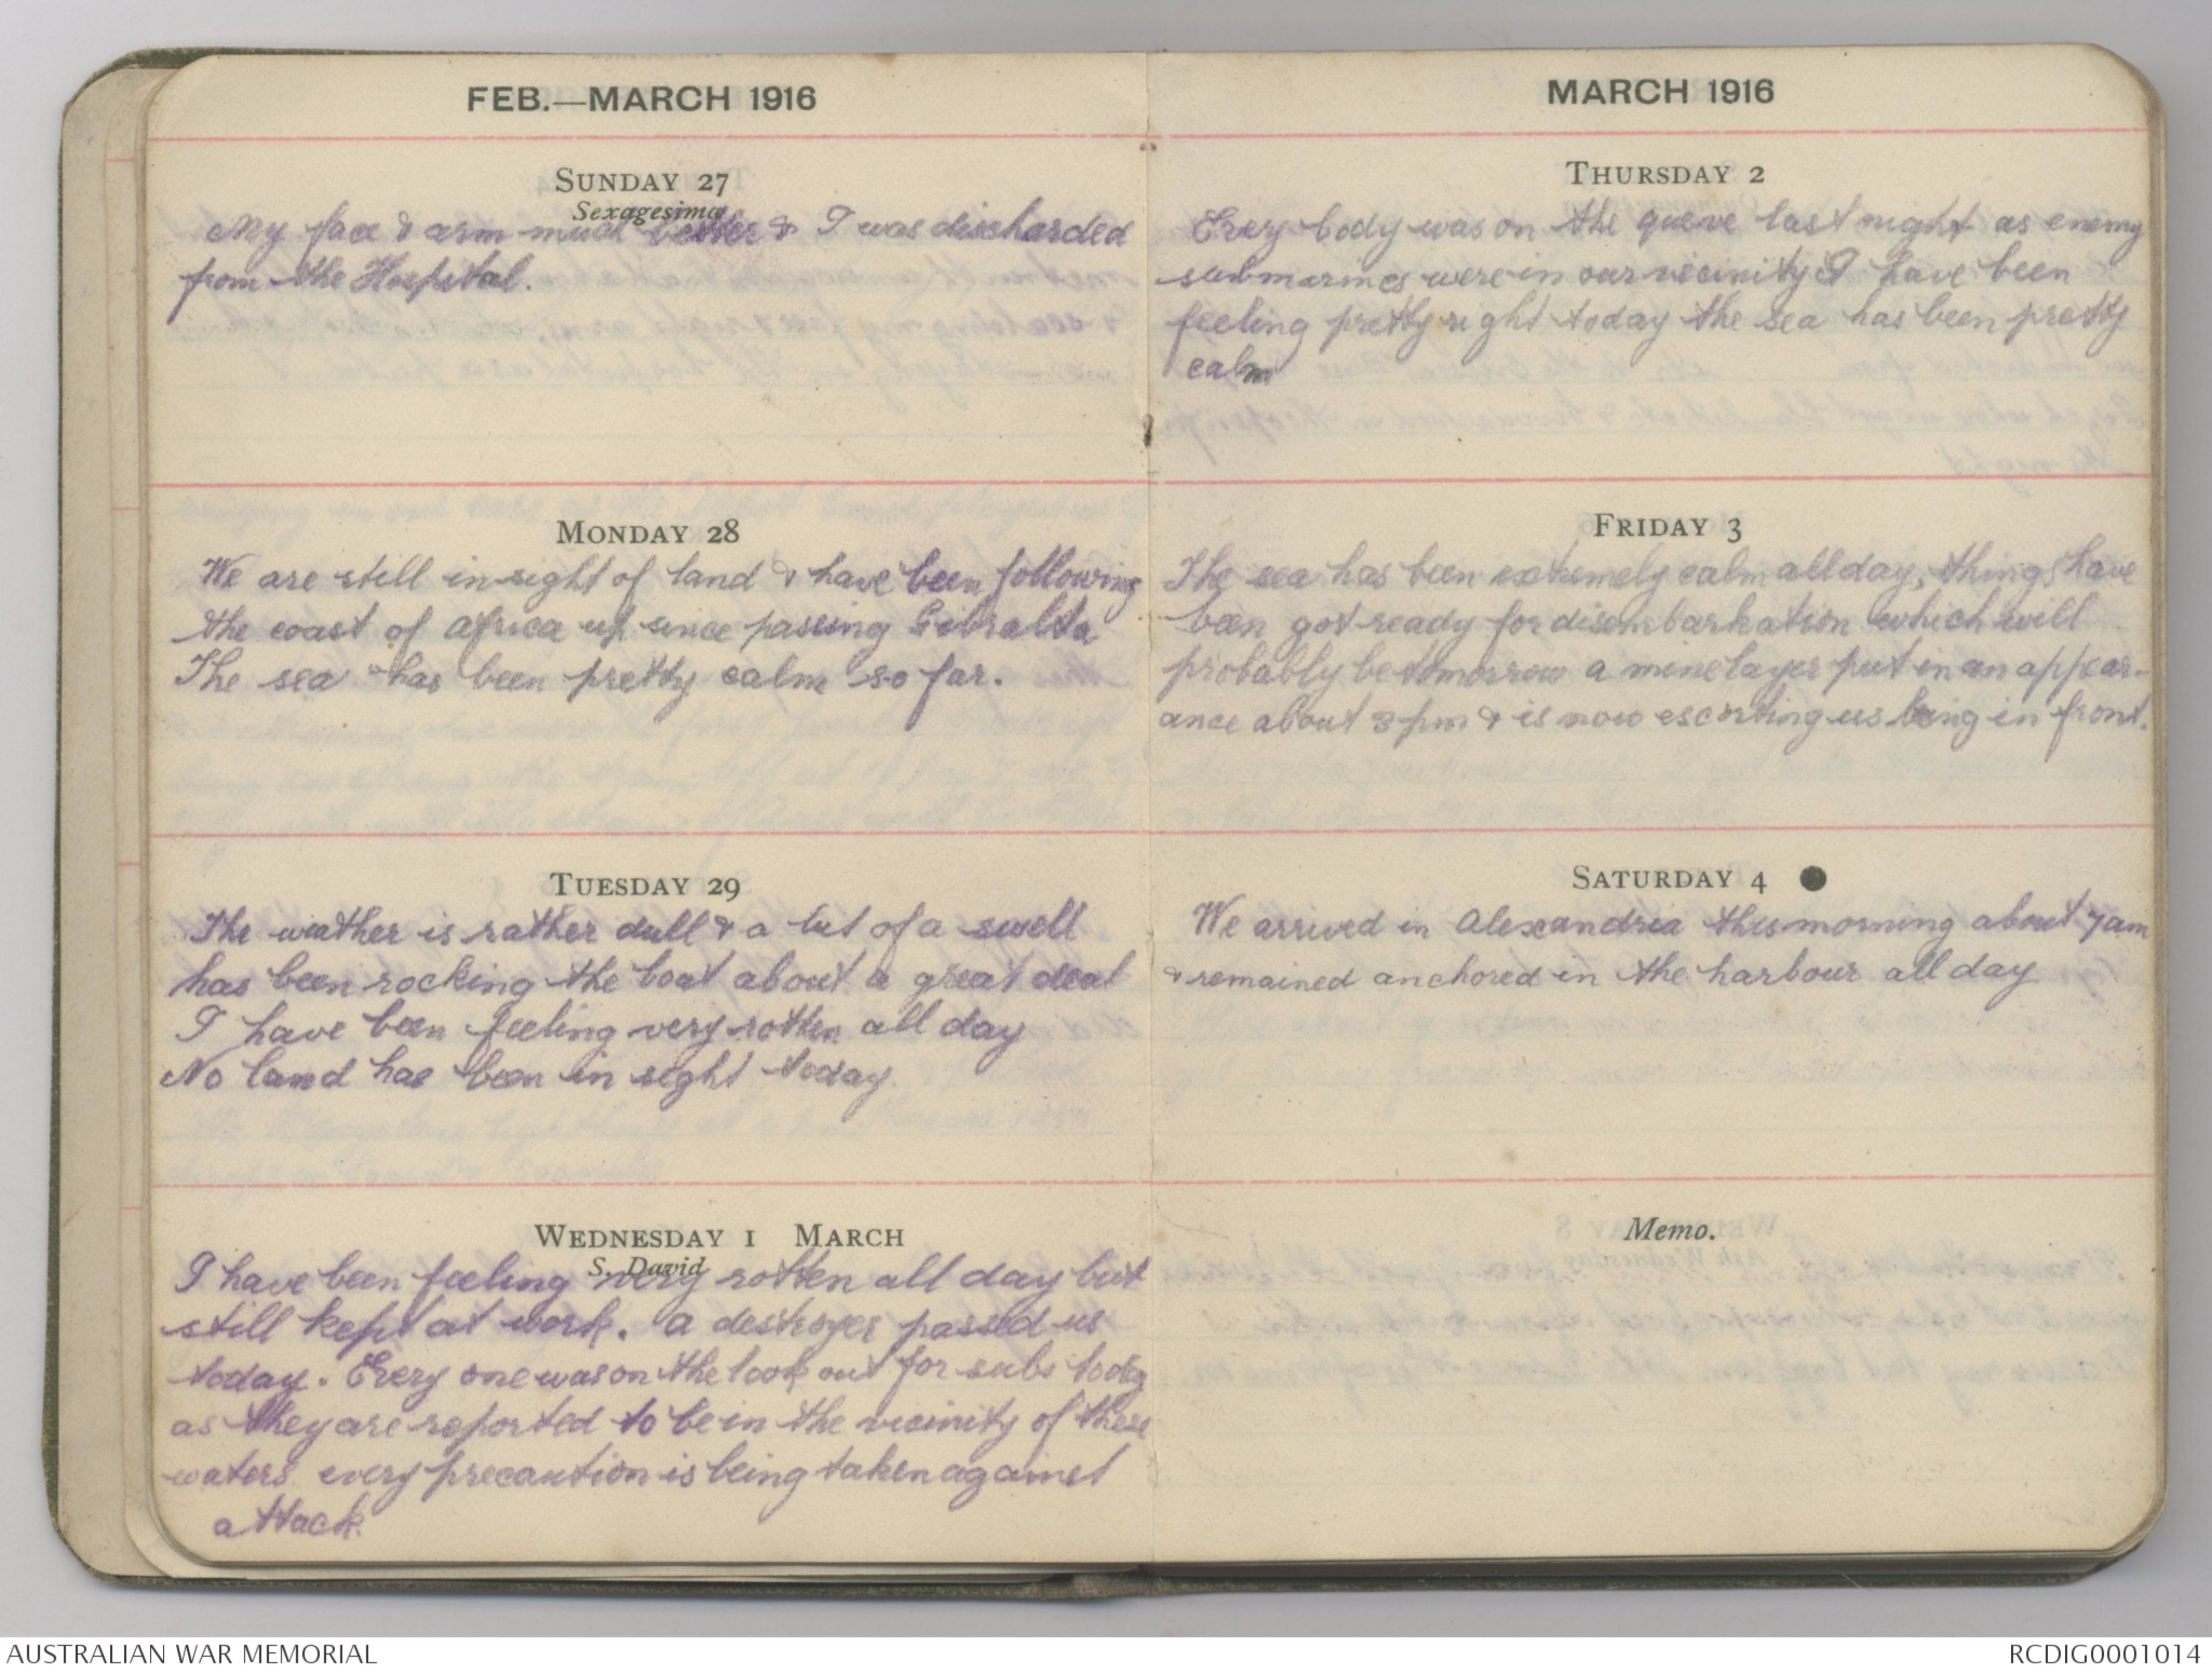 FEB.—MARCH 1916
SUNDAY 27
Sexagesima
My face & arm much better & I was discharded
from the Hospital.
MONDAY 28
We are still in sight of land & have been following
the coast of Africa up since passing Gibralta
The sea has been pretty calm so far.
TUESDAY 29
The weather is rather dull & a bit of a swell
has been rocking the boat about a great deal
I have been feeling very rotten all day
No land has been in sight today
WEDNESDAY 1 MARCH
S. David
I have been feeling very rotten all day but
still kept at work. A destroyer passed us
today. Every one was on the look out for subs today
as they are reported to be in the vicinity of these
waters every precaution is being taken against
attack.
MARCH 1916
THURSDAY 2
Every body was on the queve last night as enemy
submarines were in our vicinity I have been
feeling pretty right today the sea has been pretty
calm
FRIDAY 3
The sea has been extremely calm all day, things have
been got ready for disembarkation which will
probably be tomorrow a minelayer put in an appear-
ance about 3 pm & is now escorting us being in front.
SATURDAY 4
We arrived in Alexandria this morning about 7 am
& remained anchored in the harbour all day
Memo.
AUSTRALIAN WAR MEMORIAL
RCDIG0001014